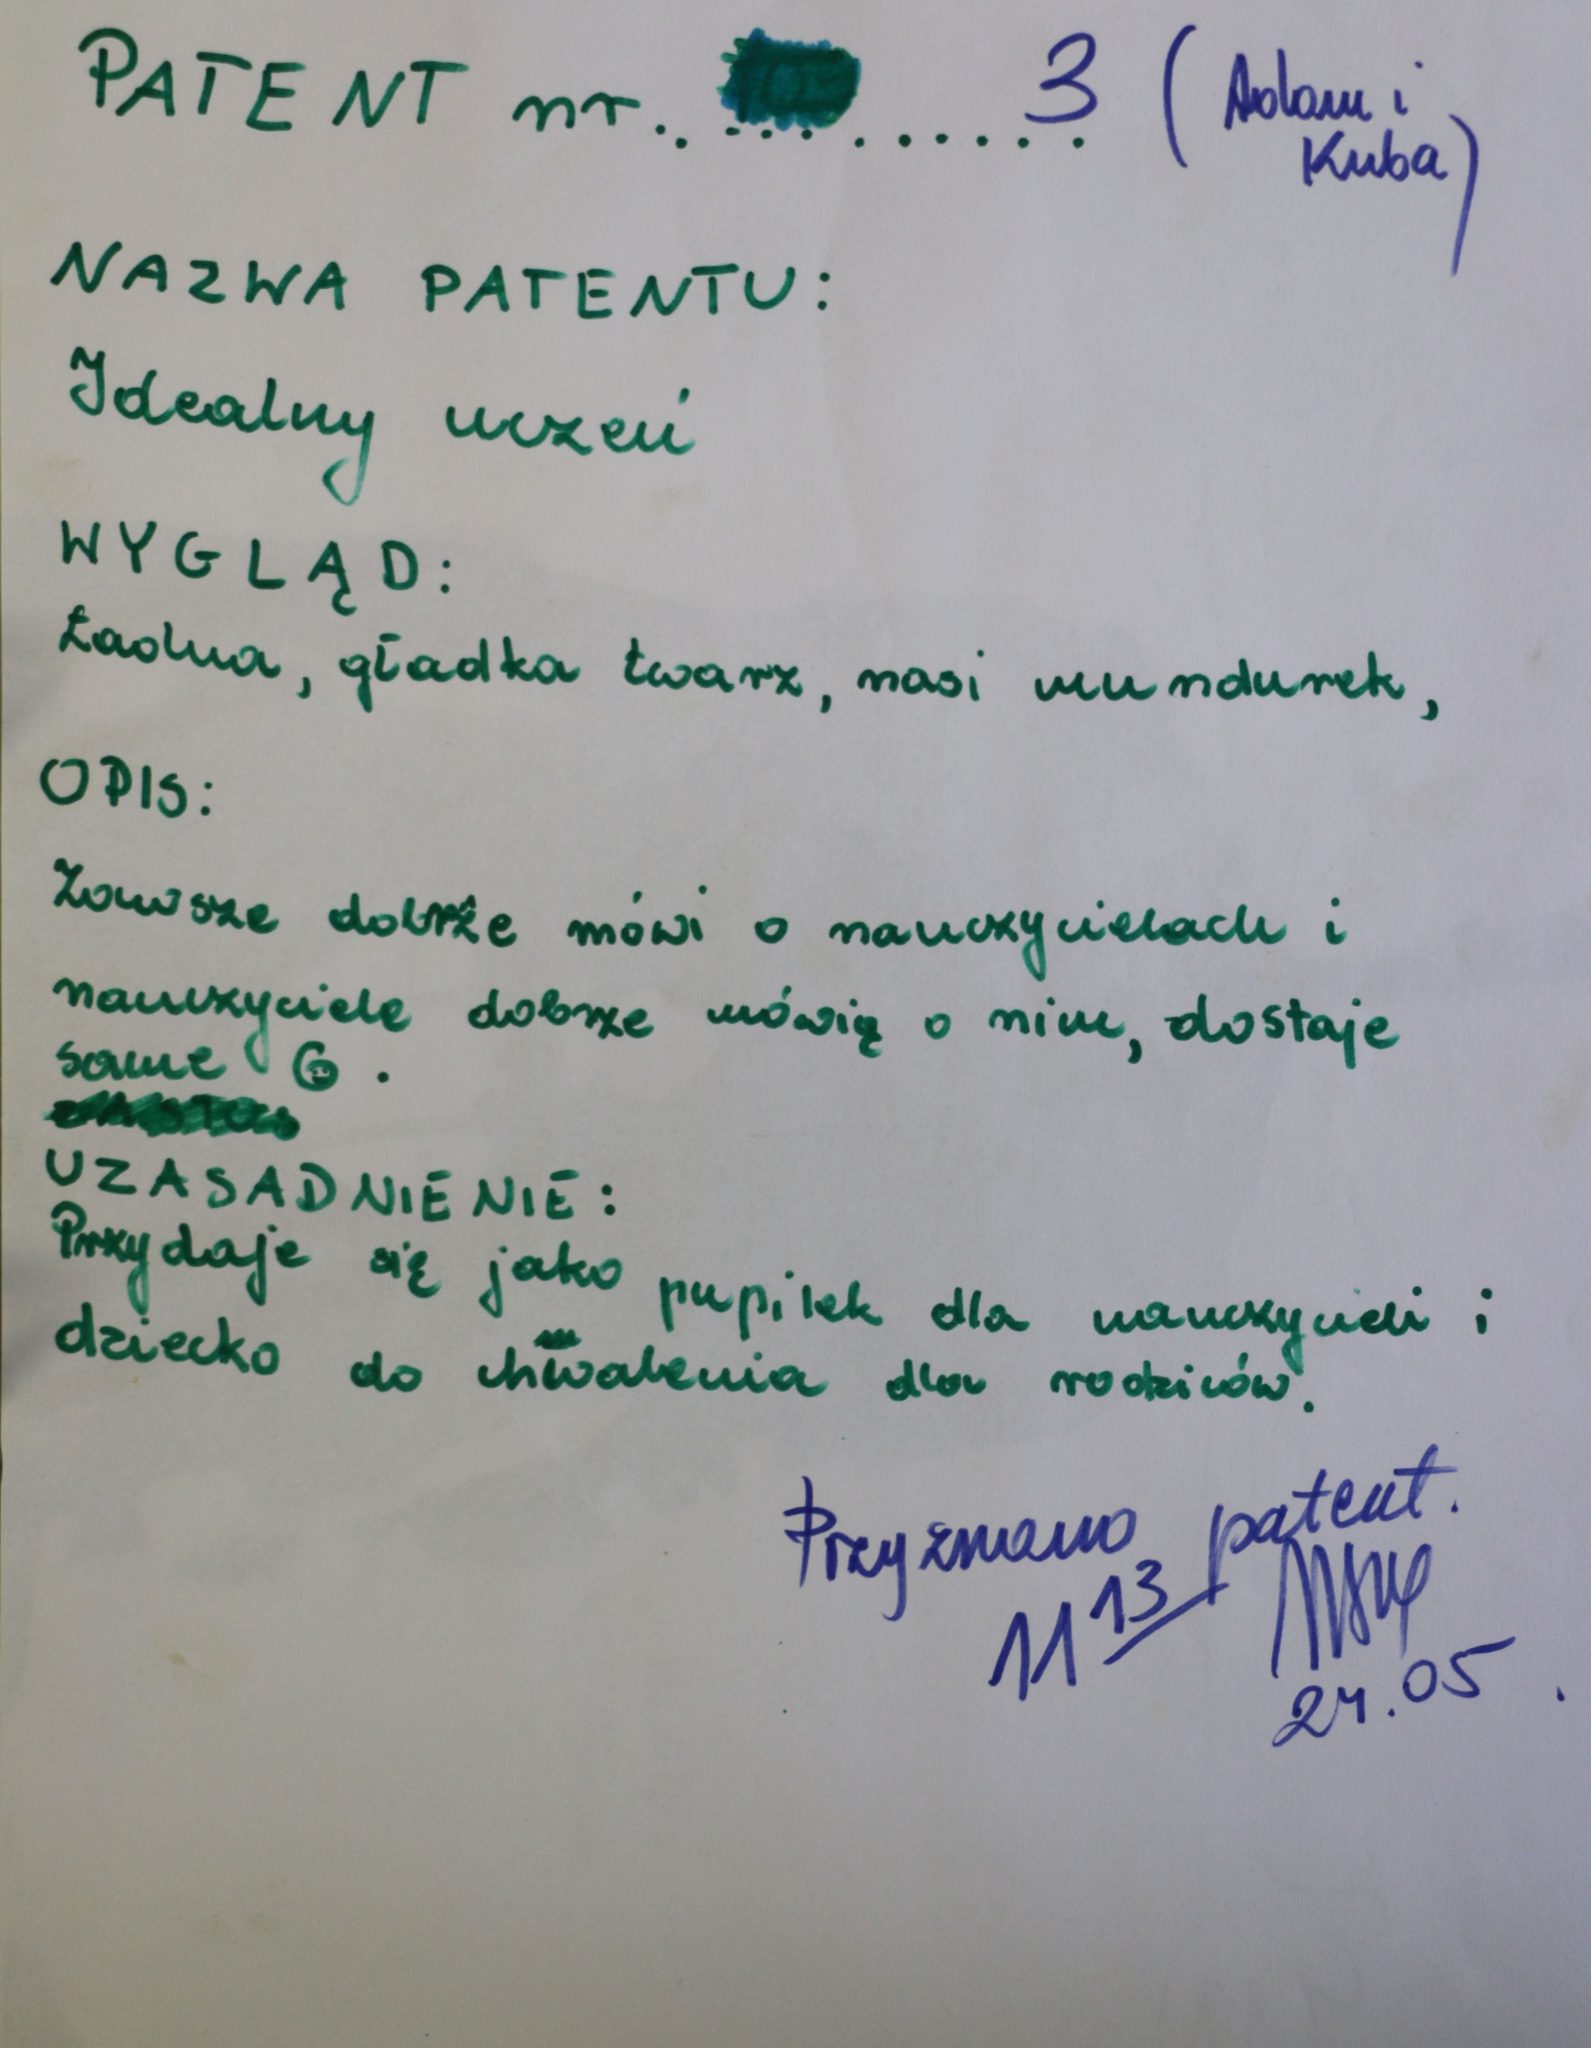 PATENT nr. ........... 3 (Adam i
Kuba)
NAZWA PATENTU:
Idealny uczeń
WYGLĄD:
Ładna, gładka twarz, nosi mundurek,
OPIS:
Zawsze dobrze mówi o nauczycielach i
nauczyciele dobrze mówią o nim, dostaje
same 6.
UZASADNIENIE:
Przydaje się jako pupilek dla nauczycieli i
dziecko do chwalenia dla rodziców.
Przyznano patent.
11 13
24.05